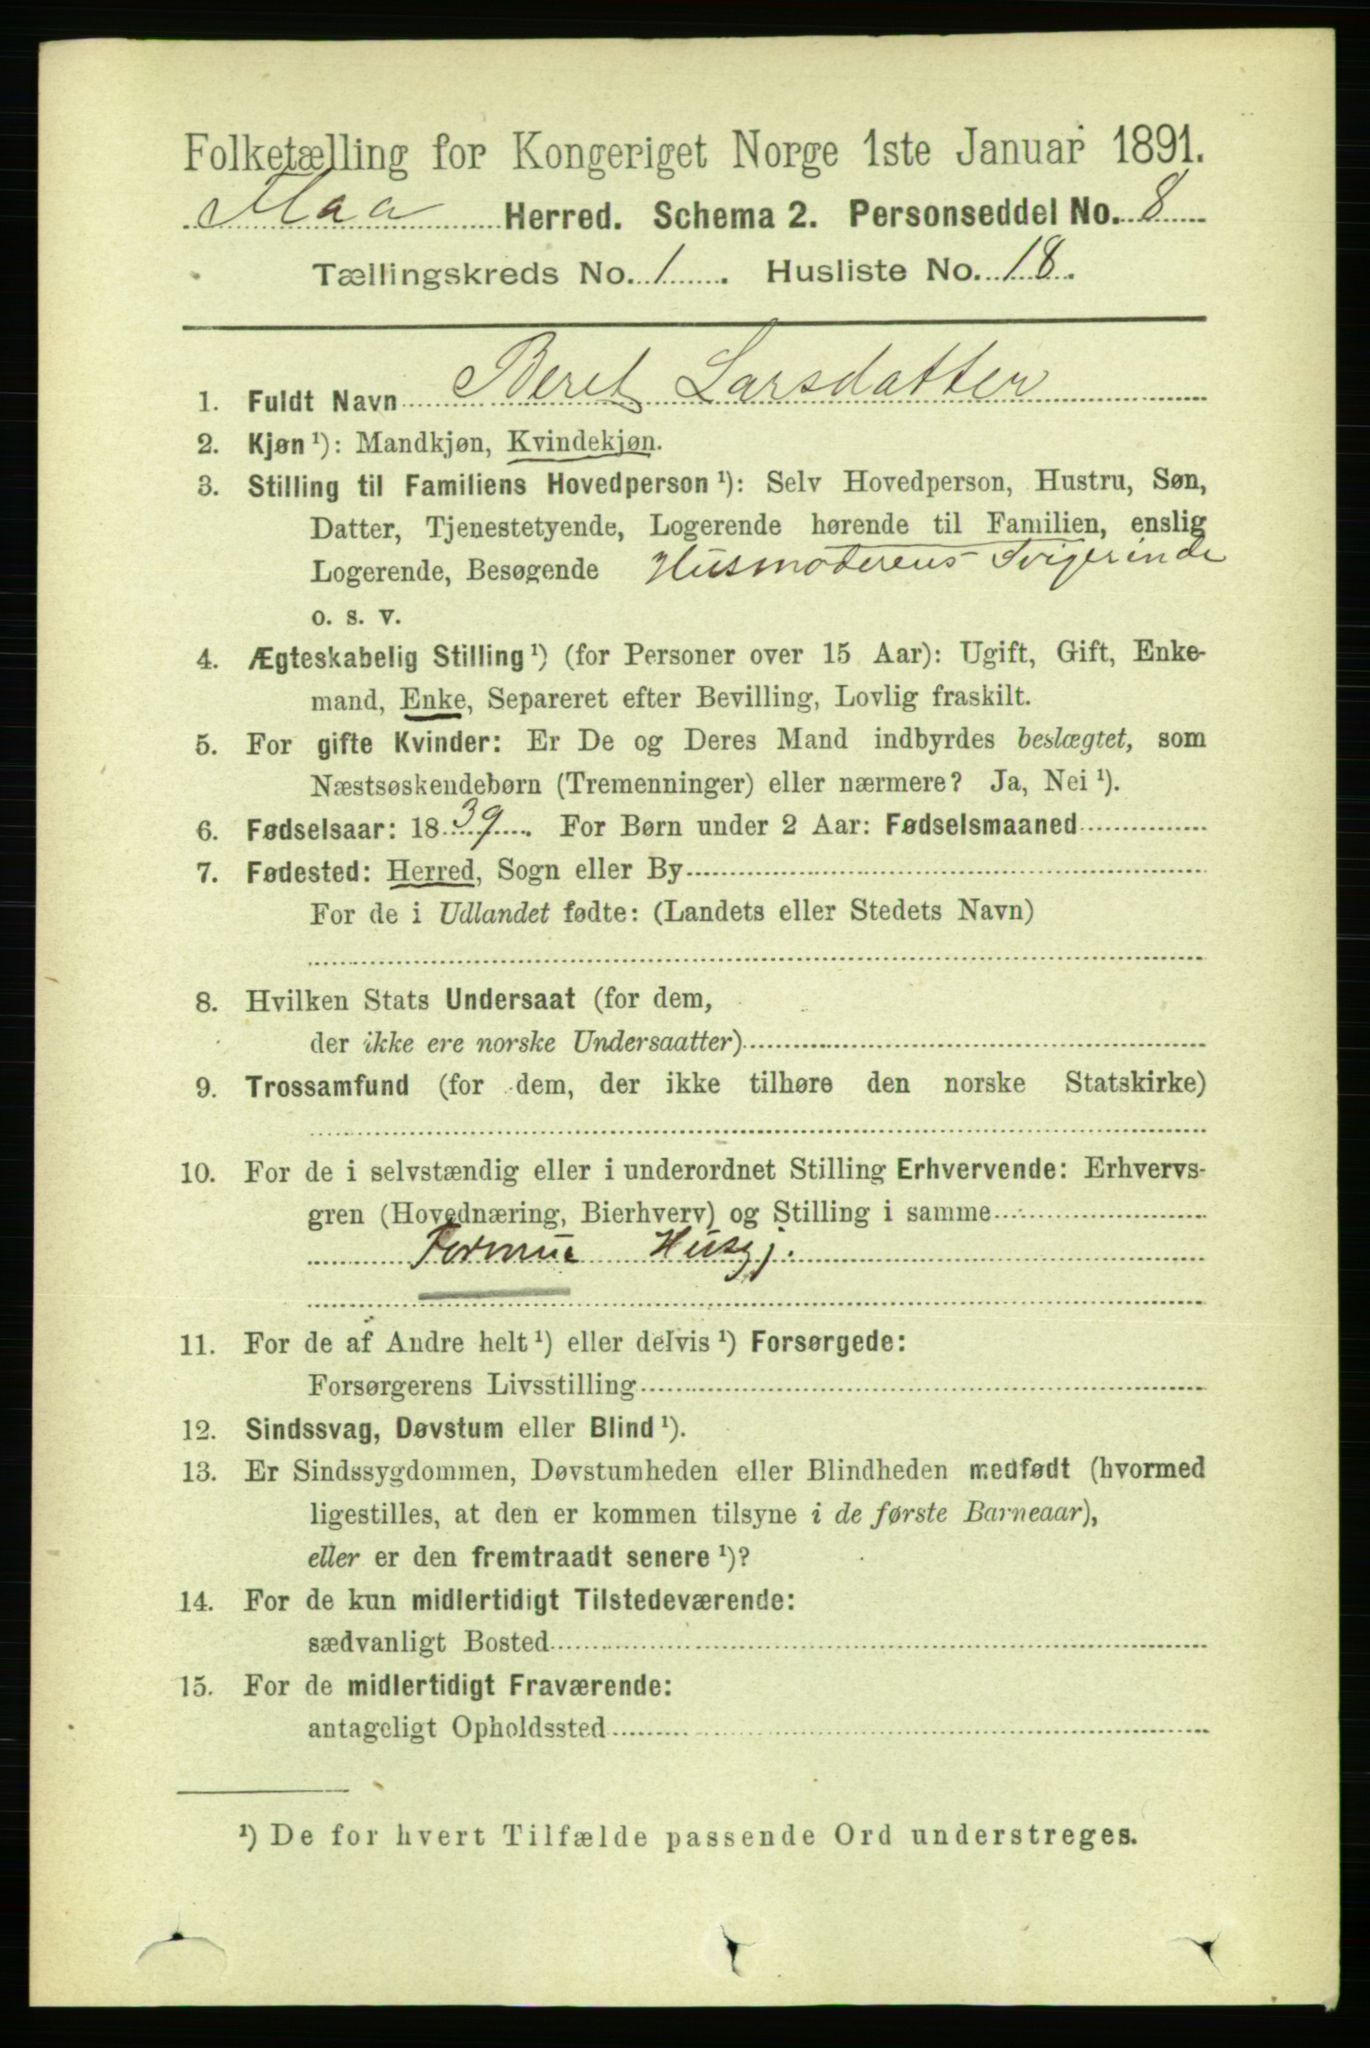 Folketælling for Kongeriget Norge 1ste Januar 1891.
Maa Herred. Schema 2. Personseddel No. 8
Tællingskreds No. 1. Husliste No. 18.
1. Fuldt Navn Beret Larsdatter
2. Kjøn ¹): Mandkjøn, Kvindekjøn.
3. Stilling til Familiens Hovedperson ¹): Selv Hovedperson, Hustru, Søn,
Datter, Tjenestetyende, Logerende hørende til Familien, enslig
Logerende, Besøgende Husmoderens Svigerinde
o. s. v.
4. Ægteskabelig Stilling ¹) (for Personer over 15 Aar): Ugift, Gift, Enke-
mand, Enke, Separeret efter Bevilling, Lovlig fraskilt.
5. For gifte Kvinder: Er De og Deres Mand indbyrdes beslægtet, som
Næstsøskendebørn (Tremenninger) eller nærmere? Ja, Nei ¹).
6. Fødselsaar: 1839. For Børn under 2 Aar: Fødselsmaaned
7. Fødested: Herred, Sogn eller By
For de i Udlandet fødte: (Landets eller Stedets Navn)
8. Hvilken Stats Undersaat (for dem,
der ikke ere norske Undersaatter)
9. Trossamfund (for dem, der ikke tilhøre den norske Statskirke)
10. For de i selvstændig eller i underordnet Stilling Erhvervende: Erhvervs-
gren (Hovednæring, Bierhverv) og Stilling i samme
Formue Husgj.
11. For de af Andre helt ¹) eller delvis ¹) Forsørgede:
Forsørgerens Livsstilling
12. Sindssvag, Døvstum eller Blind ¹).
13. Er Sindssygdommen, Døvstumheden eller Blindheden medfødt (hvormed
ligestilles, at den er kommen tilsyne i de første Barneaar),
eller er den fremtraadt senere ¹)?
14. For de kun midlertidigt Tilstedeværende:
sædvanligt Bosted
15. For de midlertidigt Fraværende:
antageligt Opholdssted
¹) De for hvert Tilfælde passende Ord understreges.